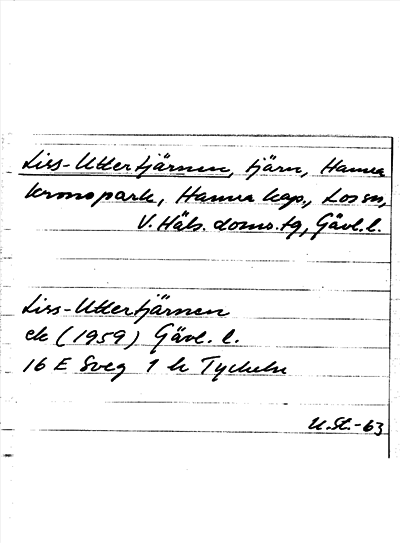 Liss-Uttertjärnen, tjärn, Hamra
kronopark, Hamra kap., Los sn,
V. Häls. doms. tg, Gävl. l.
Liss-Uttertjärnen
ek (1959) Gävl. l.
16 E Sveg 1 h Tyckeln
U. St. -63